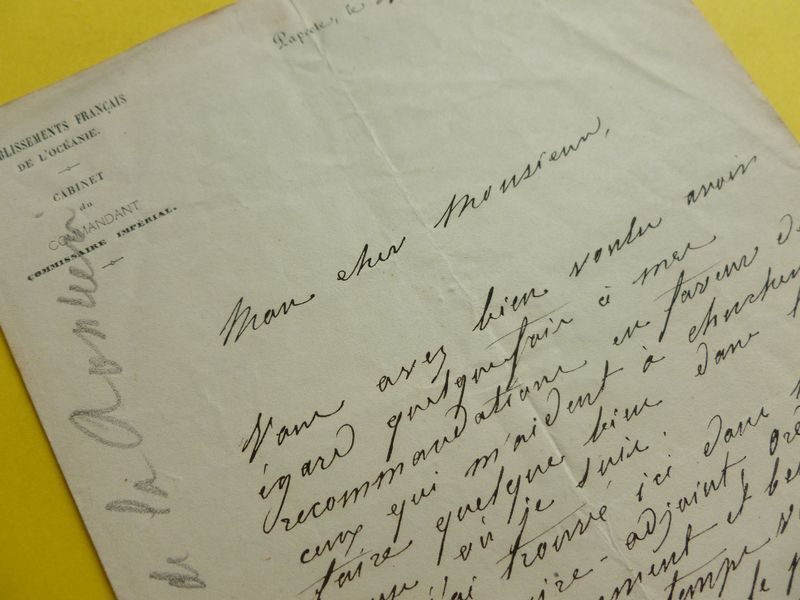 Papeete, le
BLISSEMENTS FRANÇAIS
DE L'OCÉANIE.
CABINET
du
COMMANDANT
COMMISSAIRE IMPÉRIAL.
de la
Mon cher Monsieur,
Vous avez bien voulu avoir
égard quelquefois à mes
recommandations en faveur de
ceux qui m'aident à chercher
faire quelque bien dans
où je suis.
j'ai trouvé ici dans
adjoint,